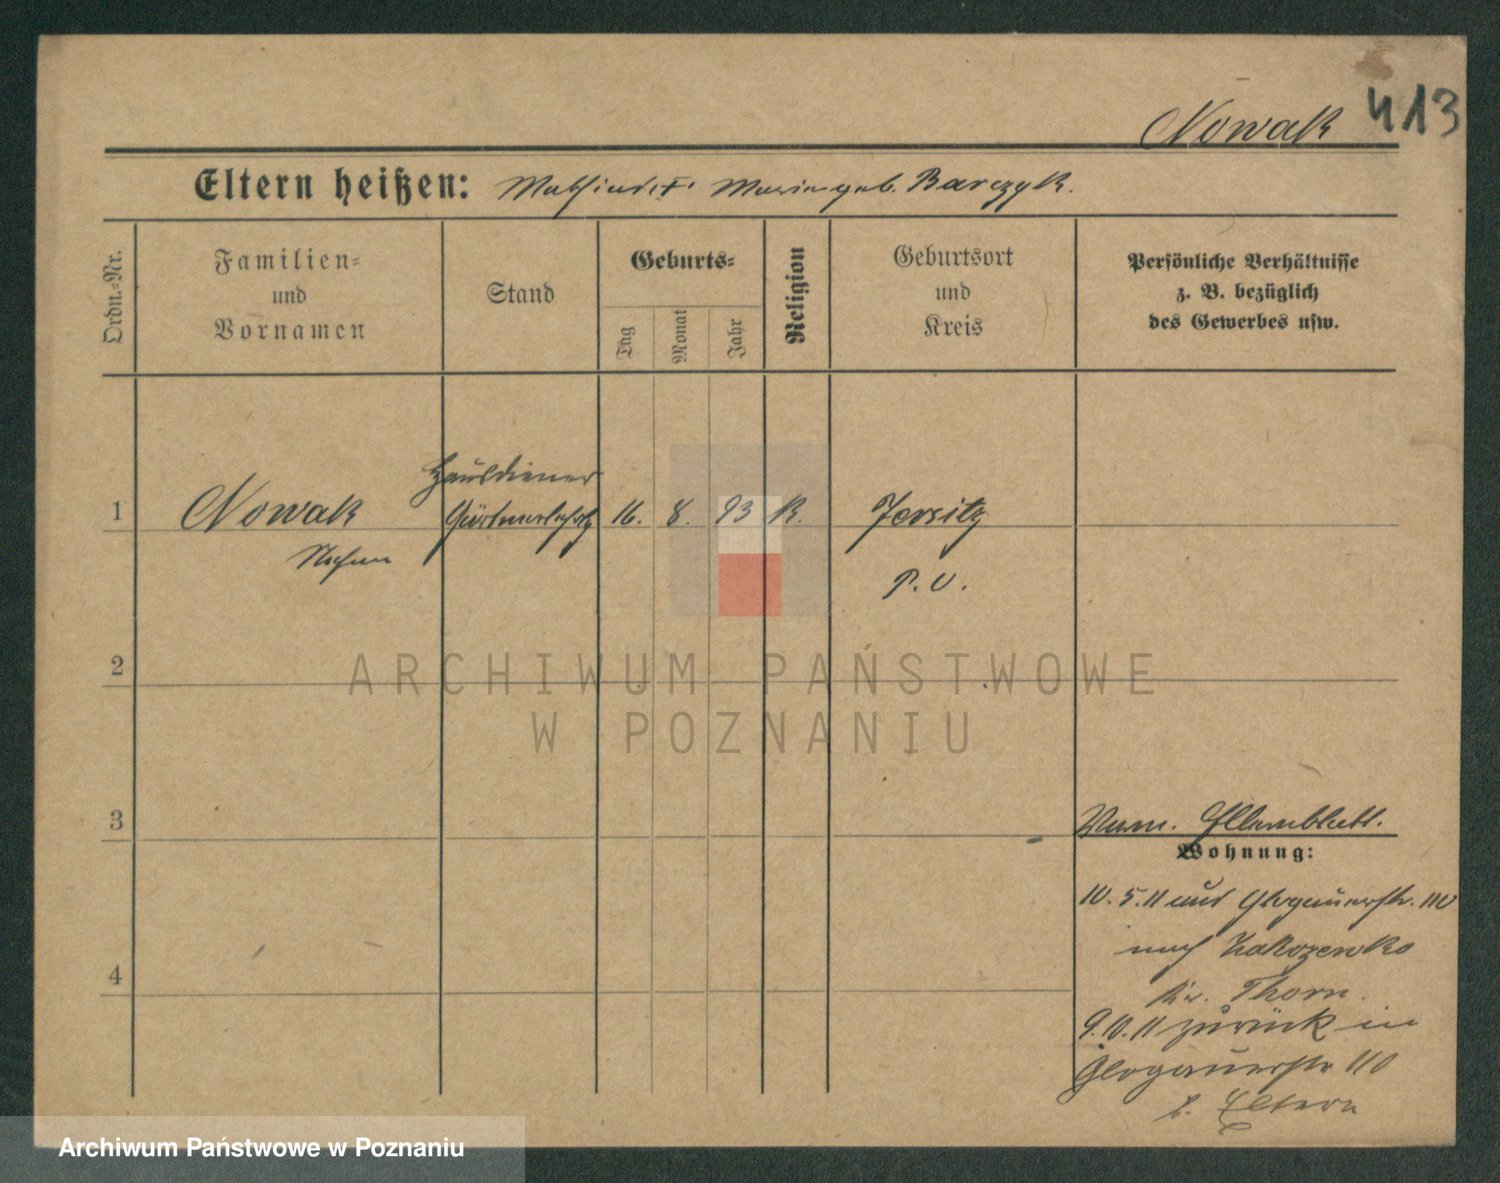 Nowak 413
Eltern heißen: Mathias u. Marie geb. Barczyk.
Ordn.-Nr.
Familien-
und
Vornamen
Stand
Geburts-
Tag
Monat
Jahr
Religion
Geburtsort
und
Kreis
Persönliche Verhältnisse
z. B. bezüglich
des Gewerbes usw.
Hausdiener
1 Nowak Gärtnerlehrlg 16. 8. 93 K. Jersitz
P. O.
2
ARCHIWUM PAŃSTWOWE
W POZNANIU
3
Elternblatt.
Wohnung:
10. 5. 11 aus Glogauerstr. 110
nach
Kr. Thorn.
9. 10. 11 zurück in
4
Glogauerstr 110
b. Eltern
Archiwum Państwowe w Poznaniu